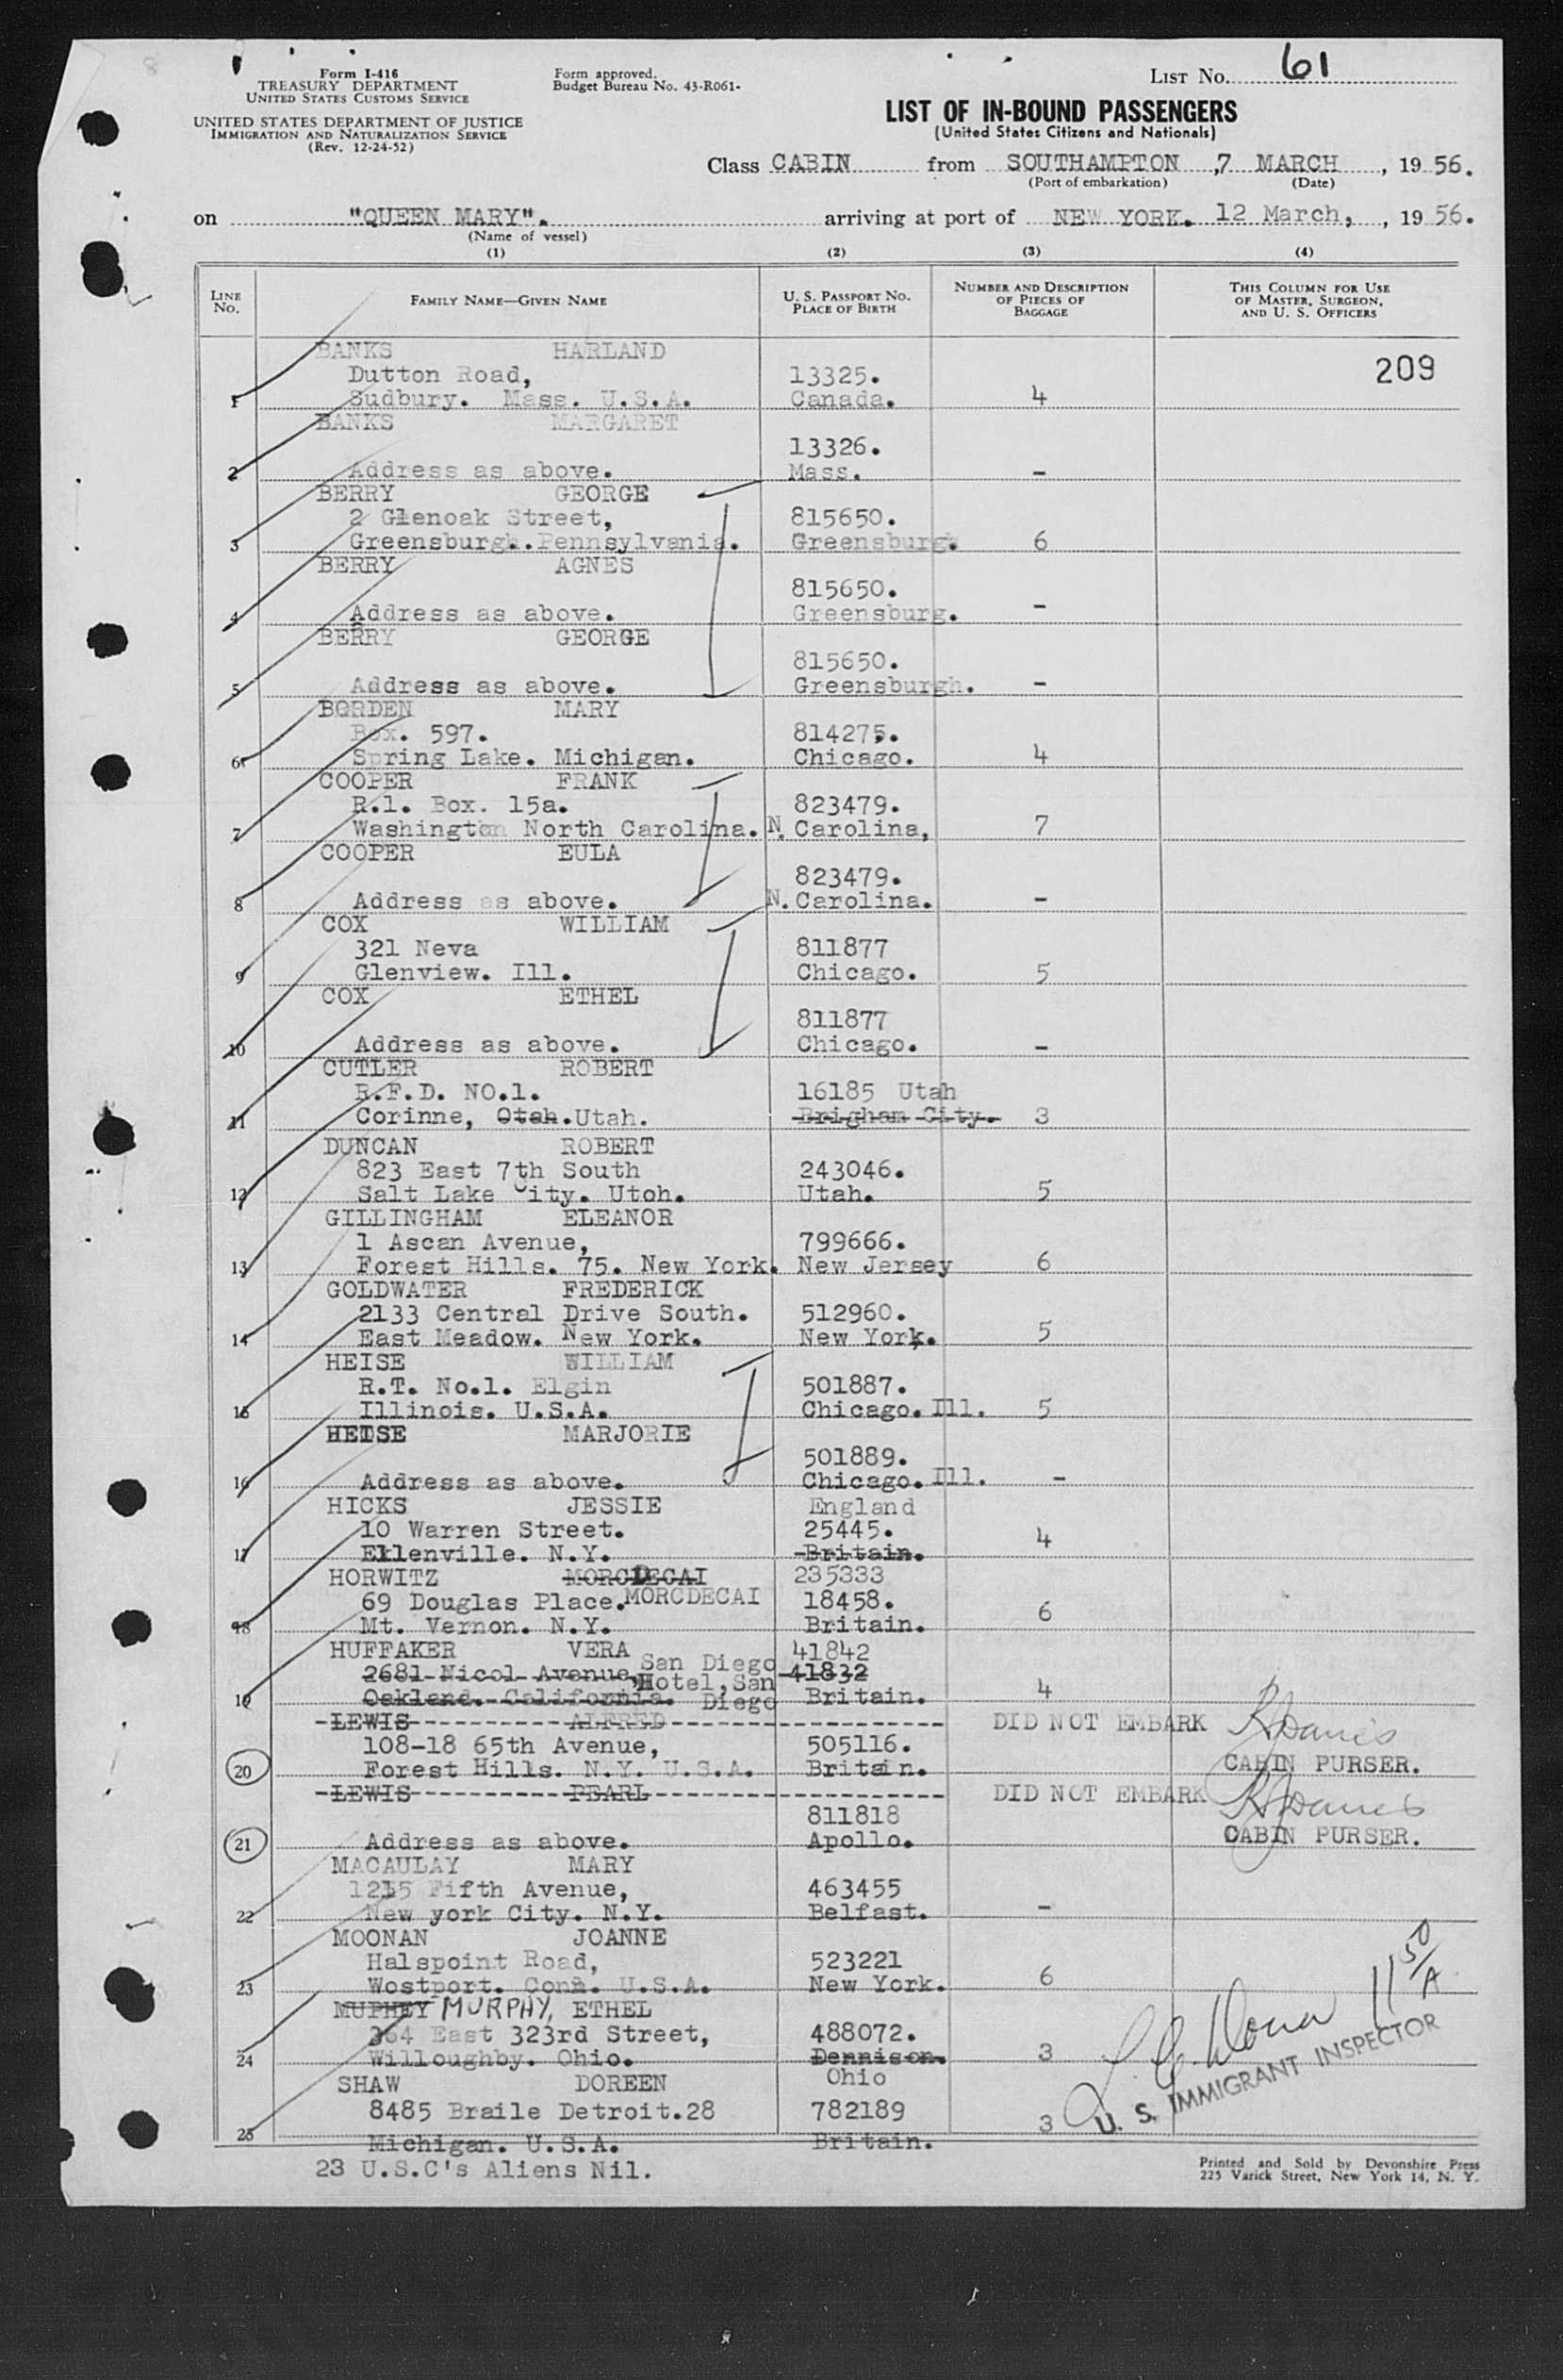 Form I-416
TREASURY DEPARTMENT
UNITED STATES CUSTOMS SERVICE
UNITED STATES DEPARTMENT OF JUSTICE
IMMIGRATION AND NATURALIZATION SERVICE
(Rev. 12-24-52)
Form approved.
Budget Bureau No. 43-R061-
LIST NO. 61
LIST OF IN-BOUND PASSENGERS
(United States Citizens and Nationals)
Class CABIN from SOUTHAMPTON ,7 MARCH , 19 56.
(Port of embarkation) (Date)
on "QUEEN MARY". arriving at port of NEW YORK. 12 March, , 19 56.
(Name of vessel)
(1) (2) (3) (4)
LINE NO. FAMILY NAME—GIVEN NAME U. S. PASSPORT NO. PLACE OF BIRTH NUMBER AND DESCRIPTION OF PIECES OF BAGGAGE THIS COLUMN FOR USE OF MASTER, SURGEON, AND U. S. OFFICERS
209
BANKS HARLAND
Dutton Road, 13325.
1 Sudbury. Mass. U.S.A. Canada. 4
BANKS MARGARET
13326.
2 Address as above. Mass. -
BERRY GEORGE
2 Glenoak Street, 815650.
3 Greensburgh. Pennsylvania. Greensburgh. 6
BERRY AGNES
815650.
4 Address as above. Greensburg. -
BERRY GEORGE
815650.
5 Address as above. Greensburgh. -
BORDEN MARY
Box. 597. 814275.
6 Spring Lake. Michigan. Chicago. 4
COOPER FRANK
R.1. Box. 15a. 823479.
7 Washington North Carolina. N. Carolina, 7
COOPER EULA
823479.
8 Address as above. N. Carolina. -
COX WILLIAM
321 Neva 811877
9 Glenview. Ill. Chicago. 5
COX ETHEL
811877
10 Address as above. Chicago. -
CUTLER ROBERT
R.F.D. NO.1. 16185 Utah
11 Corinne, Otah. Utah. Brigham City. 3
DUNCAN ROBERT
823 East 7th South 243046.
12 Salt Lake City. Utoh. Utah. 5
GILLINGHAM ELEANOR
1 Ascan Avenue, 799666.
13 Forest Hills. 75. New York. New Jersey 6
GOLDWATER FREDERICK
2133 Central Drive South. 512960.
14 East Meadow. New York. New York. 5
HEISE WILLIAM
R.T. No.1. Elgin 501887.
15 Illinois. U.S.A. Chicago. Ill. 5
HEISE MARJORIE
501889.
16 Address as above. Chicago. Ill. -
HICKS JESSIE England
10 Warren Street. 25445.
17 Ellenville. N.Y. Britain. 4
HORWITZ MORCDECAI 235333
69 Douglas Place. MORCDECAI 18458.
18 Mt. Vernon. N.Y. Britain. 6
HUFFAKER VERA San Diego 41842
2681 Nicol Avenue, Hotel, San 41832
19 Oakland. California. Diego Britain. 4
LEWIS ALFRED DID NOT EMBARK
108-18 65th Avenue, 505116.
20 Forest Hills. N.Y. U.S.A. Britain. CABIN PURSER.
LEWIS PEARL DID NOT EMBARK
811818
21 Address as above. Apollo. CABIN PURSER.
MACAULAY MARY
1215 Fifth Avenue, 463455
22 New york City. N.Y. Belfast. -
MOONAN JOANNE
Halspoint Road, 523221
23 Westport. Conn. U.S.A. New York. 6
MUPHEY MURPHY, ETHEL
364 East 323rd Street, 488072.
24 Willoughby. Ohio. Dennison. 3
Ohio
SHAW DOREEN
8485 Braile Detroit.28 782189
25 3
Michigan. U.S.A. Britain.
11 50/A
U. S. IMMIGRANT INSPECTOR
23 U.S.C's Aliens Nil.
Printed and Sold by Devonshire Press
225 Varick Street, New York 14, N. Y.